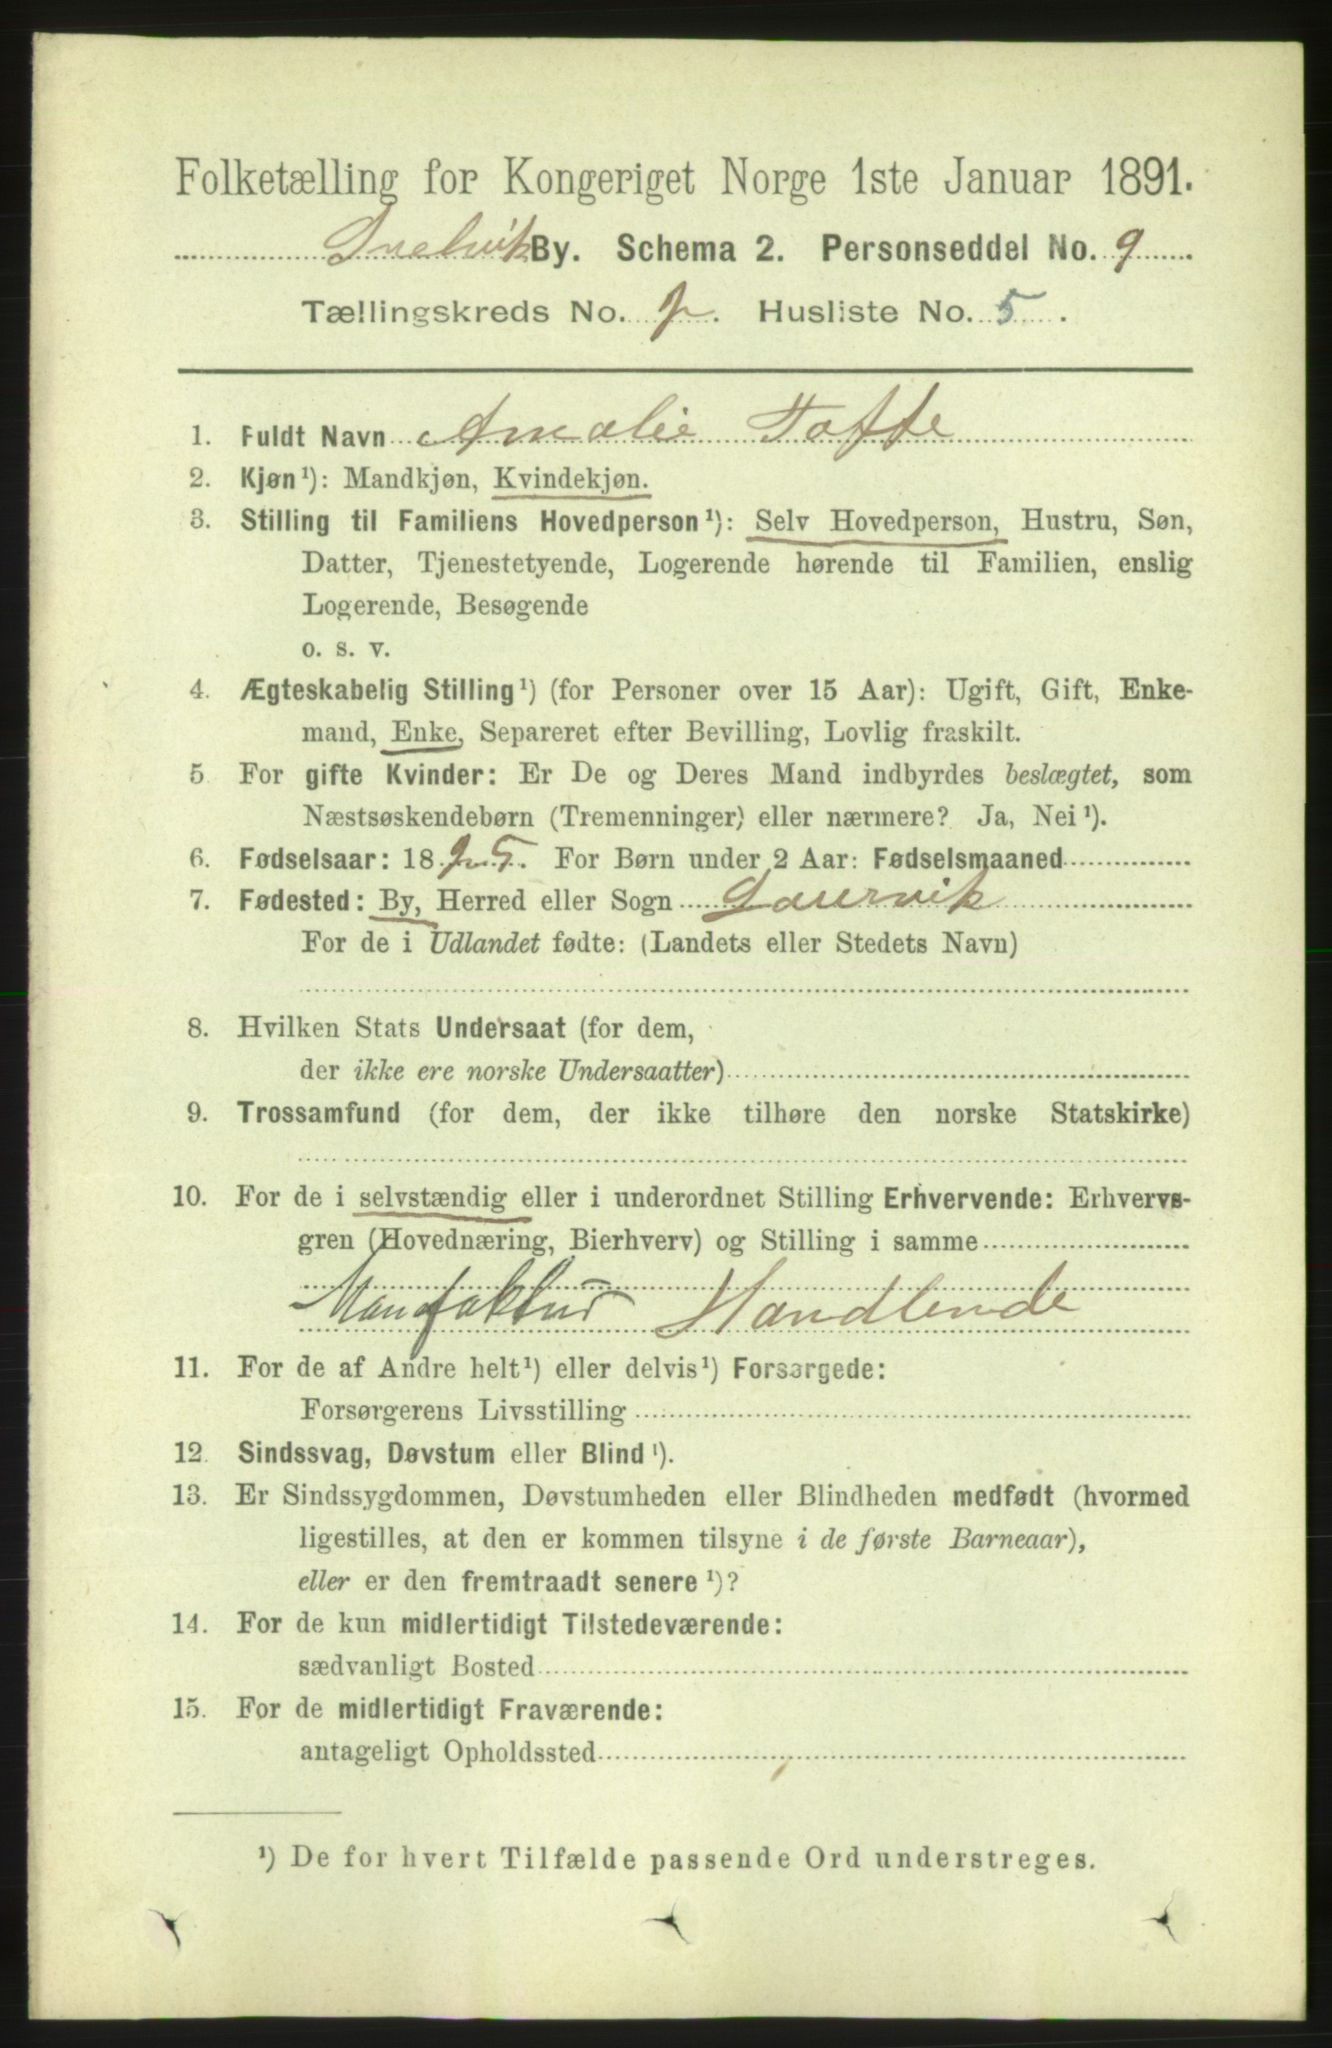 Folketælling for Kongeriget Norge 1ste Januar 1891.
Svelvik By. Schema 2. Personseddel No. 9
Tællingskreds No. 2. Husliste No. 5.
1. Fuldt Navn Amalie Tofte
2. Kjøn¹): Mandkjøn, Kvindekjøn.
3. Stilling til Familiens Hovedperson¹): Selv Hovedperson, Hustru, Søn,
Datter, Tjenestetyende, Logerende hørende til Familien, enslig
Logerende, Besøgende
o. s. v.
4. Ægteskabelig Stilling¹) (for Personer over 15 Aar): Ugift, Gift, Enke-
mand, Enke, Separeret efter Bevilling, Lovlig fraskilt.
5 For gifte Kvinder: Er De og Deres Mand indbyrdes beslægtet, som
Næstsøskendebørn (Tremenninger) eller nærmere? Ja, Nei¹).
6. Fødselsaar: 1825. For Børn under 2 Aar: Fødselsmaaned
7. Fødested: By, Herred eller Sogn Laurvik
For de i Udlandet fødte: (Landets eller Stedets Navn)
8. Hvilken Stats Undersaat (for dem,
der ikke ere norske Undersaatter)
9. Trossamfund (for dem, der ikke tilhøre den norske Statskirke)
10. For de i selvstændig eller i underordnet Stilling Erhvervende: Erhvervs-
gren (Hovednæring, Bierhverv) og Stilling i samme
Manufaktur Handlende
11. For de af Andre helt¹) eller delvis¹) Forsørgede:
Forsørgerens Livsstilling
12. Sindssvag, Døvstum eller Blind¹).
13. Er Sindssygdommen, Døvstumheden eller Blindheden medfødt (hvormed
ligestilles, at den er kommen tilsyne i de første Barneaar),
eller er den fremtraadt senere¹)?
14. For de kun midlertidigt Tilstedeværende:
sædvanligt Bosted
15. For de midlertidigt Fraværende:
antageligt Opholdssted
¹) De for hvert Tilfælde passende Ord understreges.